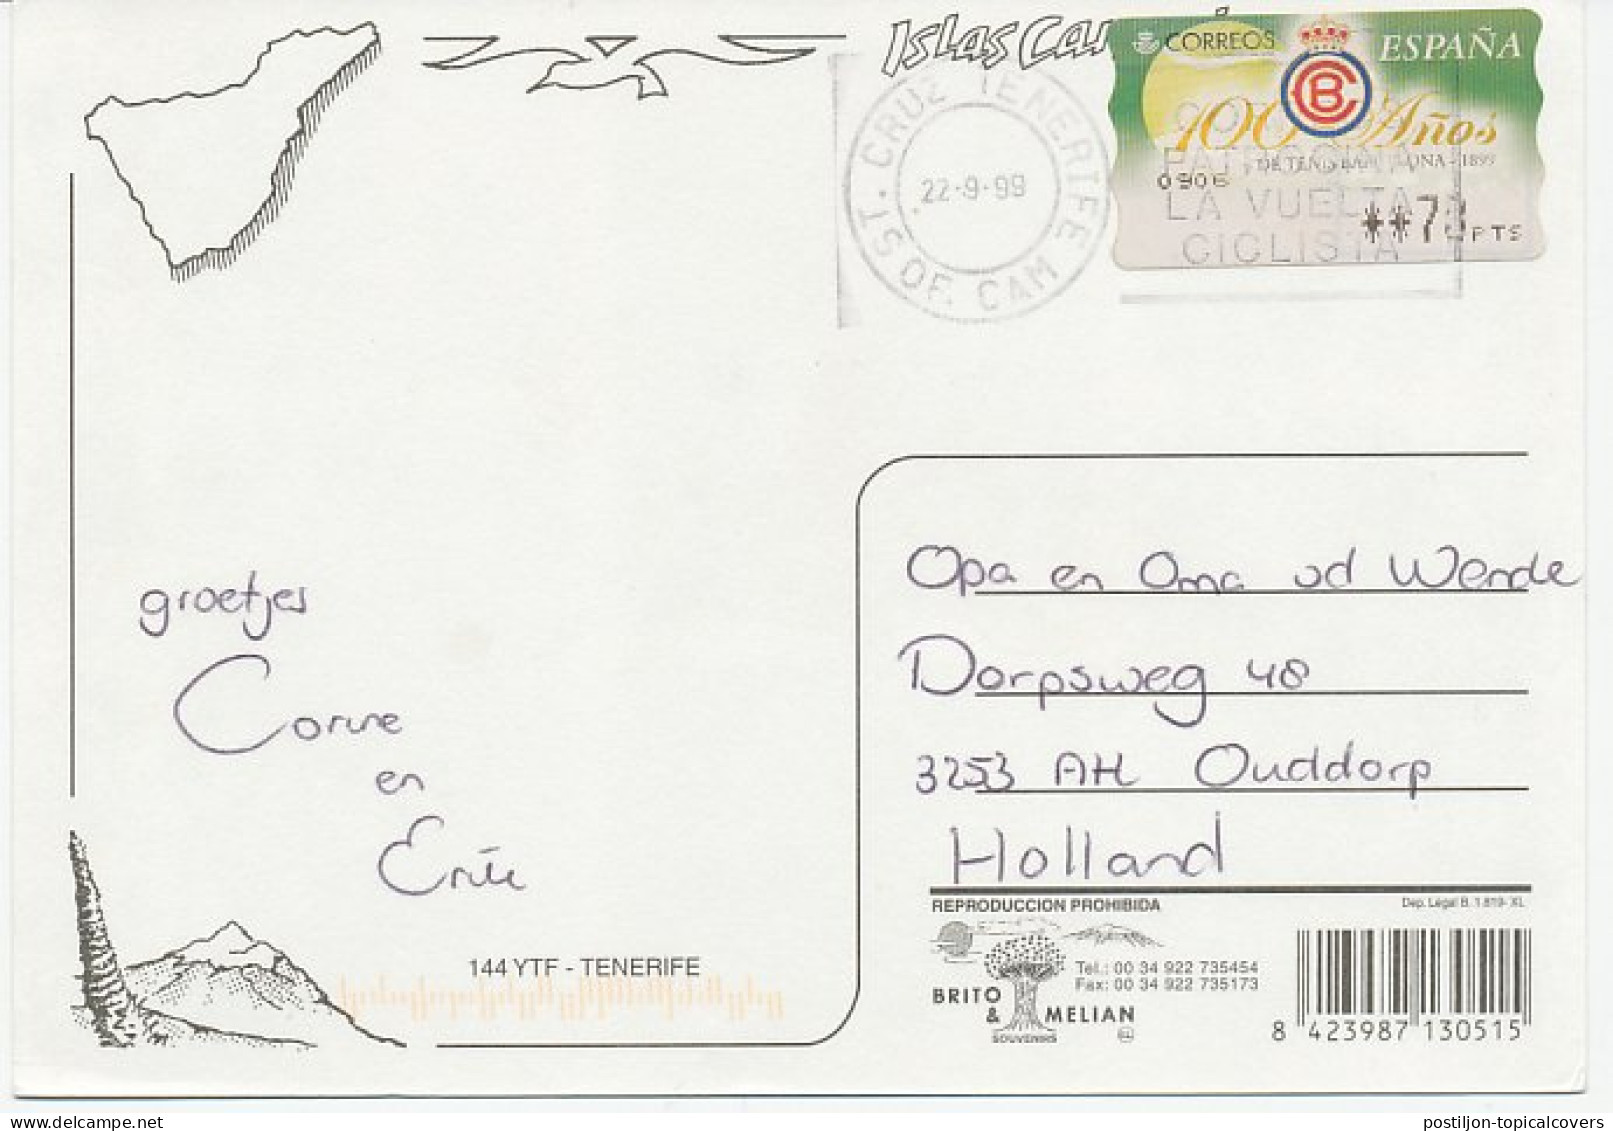 Islas Ca
CORREOS
ESPAÑA
100 Años
DE TENIS BARCELONA - 1899
0906
**7 PTS
CRUZ TENERIFE
22-9-99
PATROCINA
LA VUELTA
CICLISTA
groetjes
Corine
en
Opa en Oma vd Wende
Dorpsweg 48
3253 AH Ouddorp
Holland
REPRODUCCION PROHIBIDA
Dep. Legal B. 1.819- XL
144 YTF - TENERIFE
BRITO
&
MELIAN
SOUVENIRS
Tel.: 00 34 922 735454
Fax: 00 34 922 735173
8 423987 130515
postiljon-topicalcovers